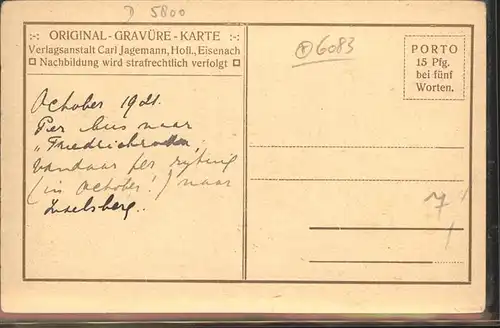 D 5800
ORIGINAL-GRAVÜRE-KARTE
Verlagsanstalt Carl Jagemann, Hofl., Eisenach
Nachbildung wird strafrechtlich verfolgt
6083
PORTO
15 Pfg.
bei fünf
Worten.
October 1921.
Per bus naar
„Friedrichroda,
vandaar per rijtuig
(in October!) naar
Inselsberg..
7